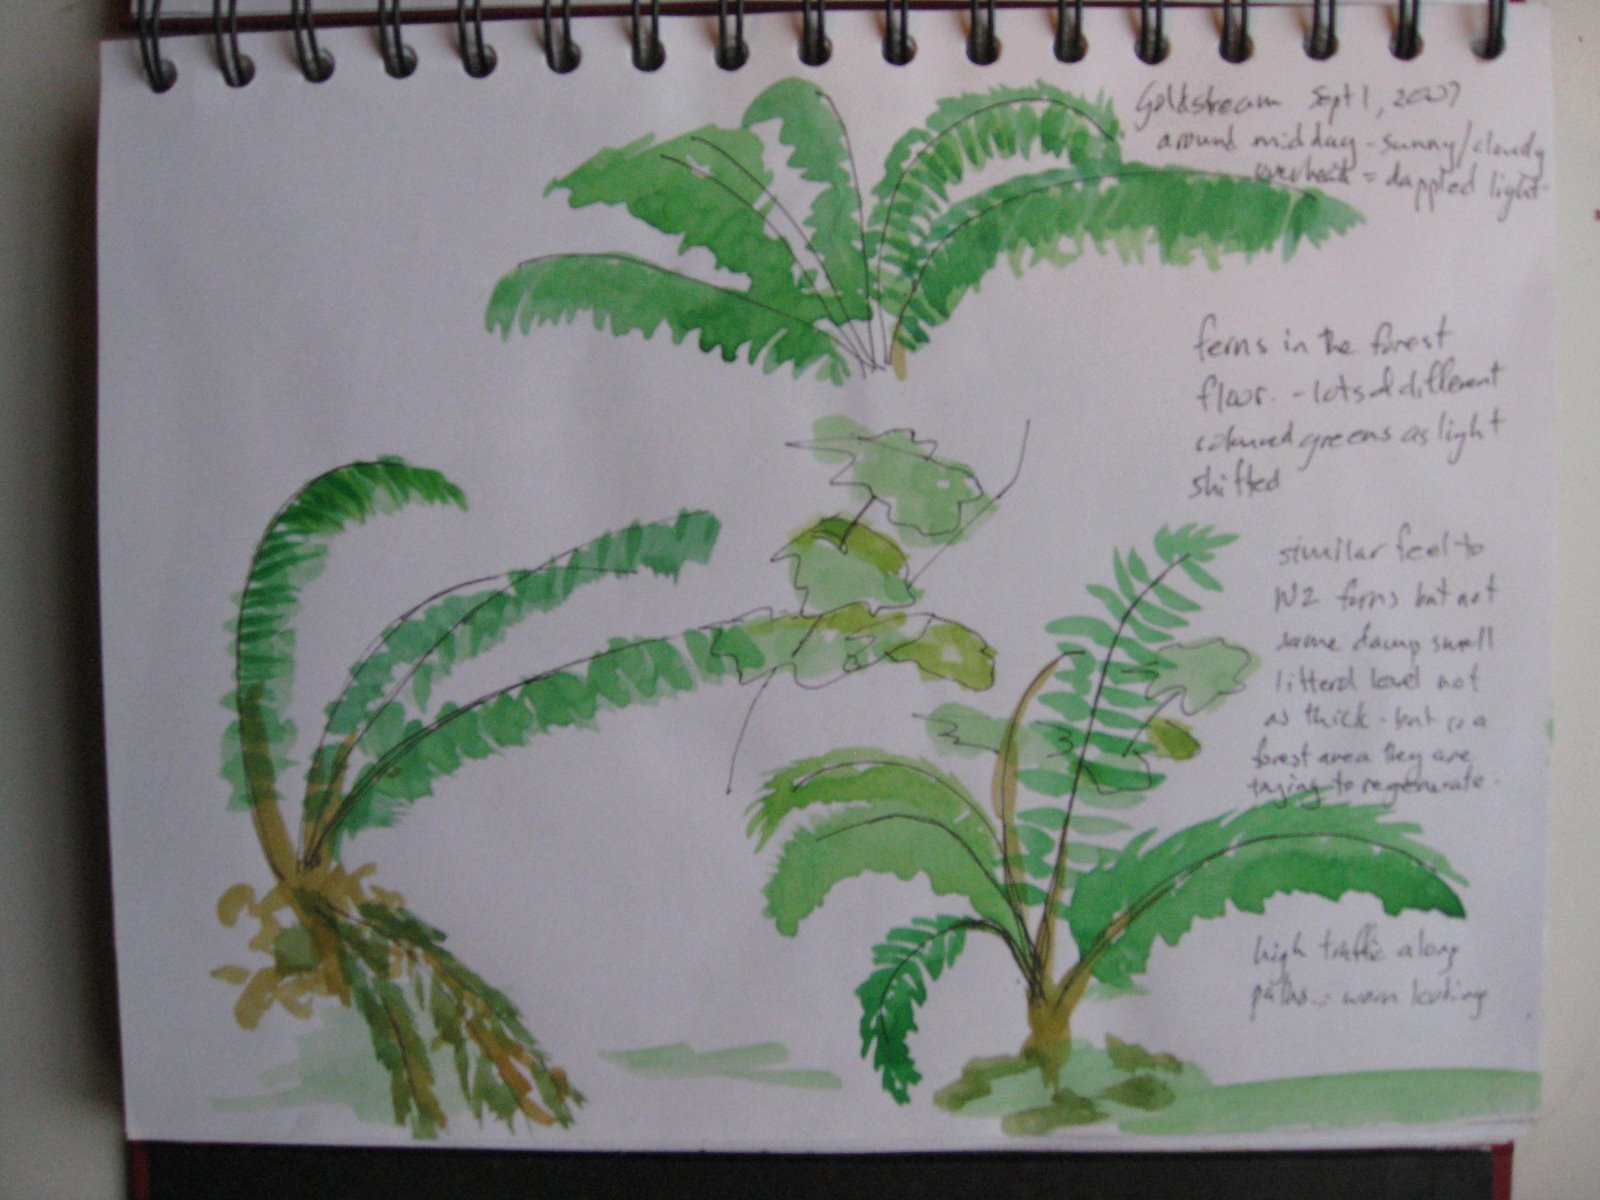 Goldstream Sept 1, 2007
around midday - sunny/cloudy
overhead = dappled light
ferns in the forest
floor. - lots of different
coloured greens as light
shifted
similar feel to
NZ ferns but not
same damp smell
litteral level not
as thick - but is a
forest area they are
trying to regenerate.
high traffic along
paths